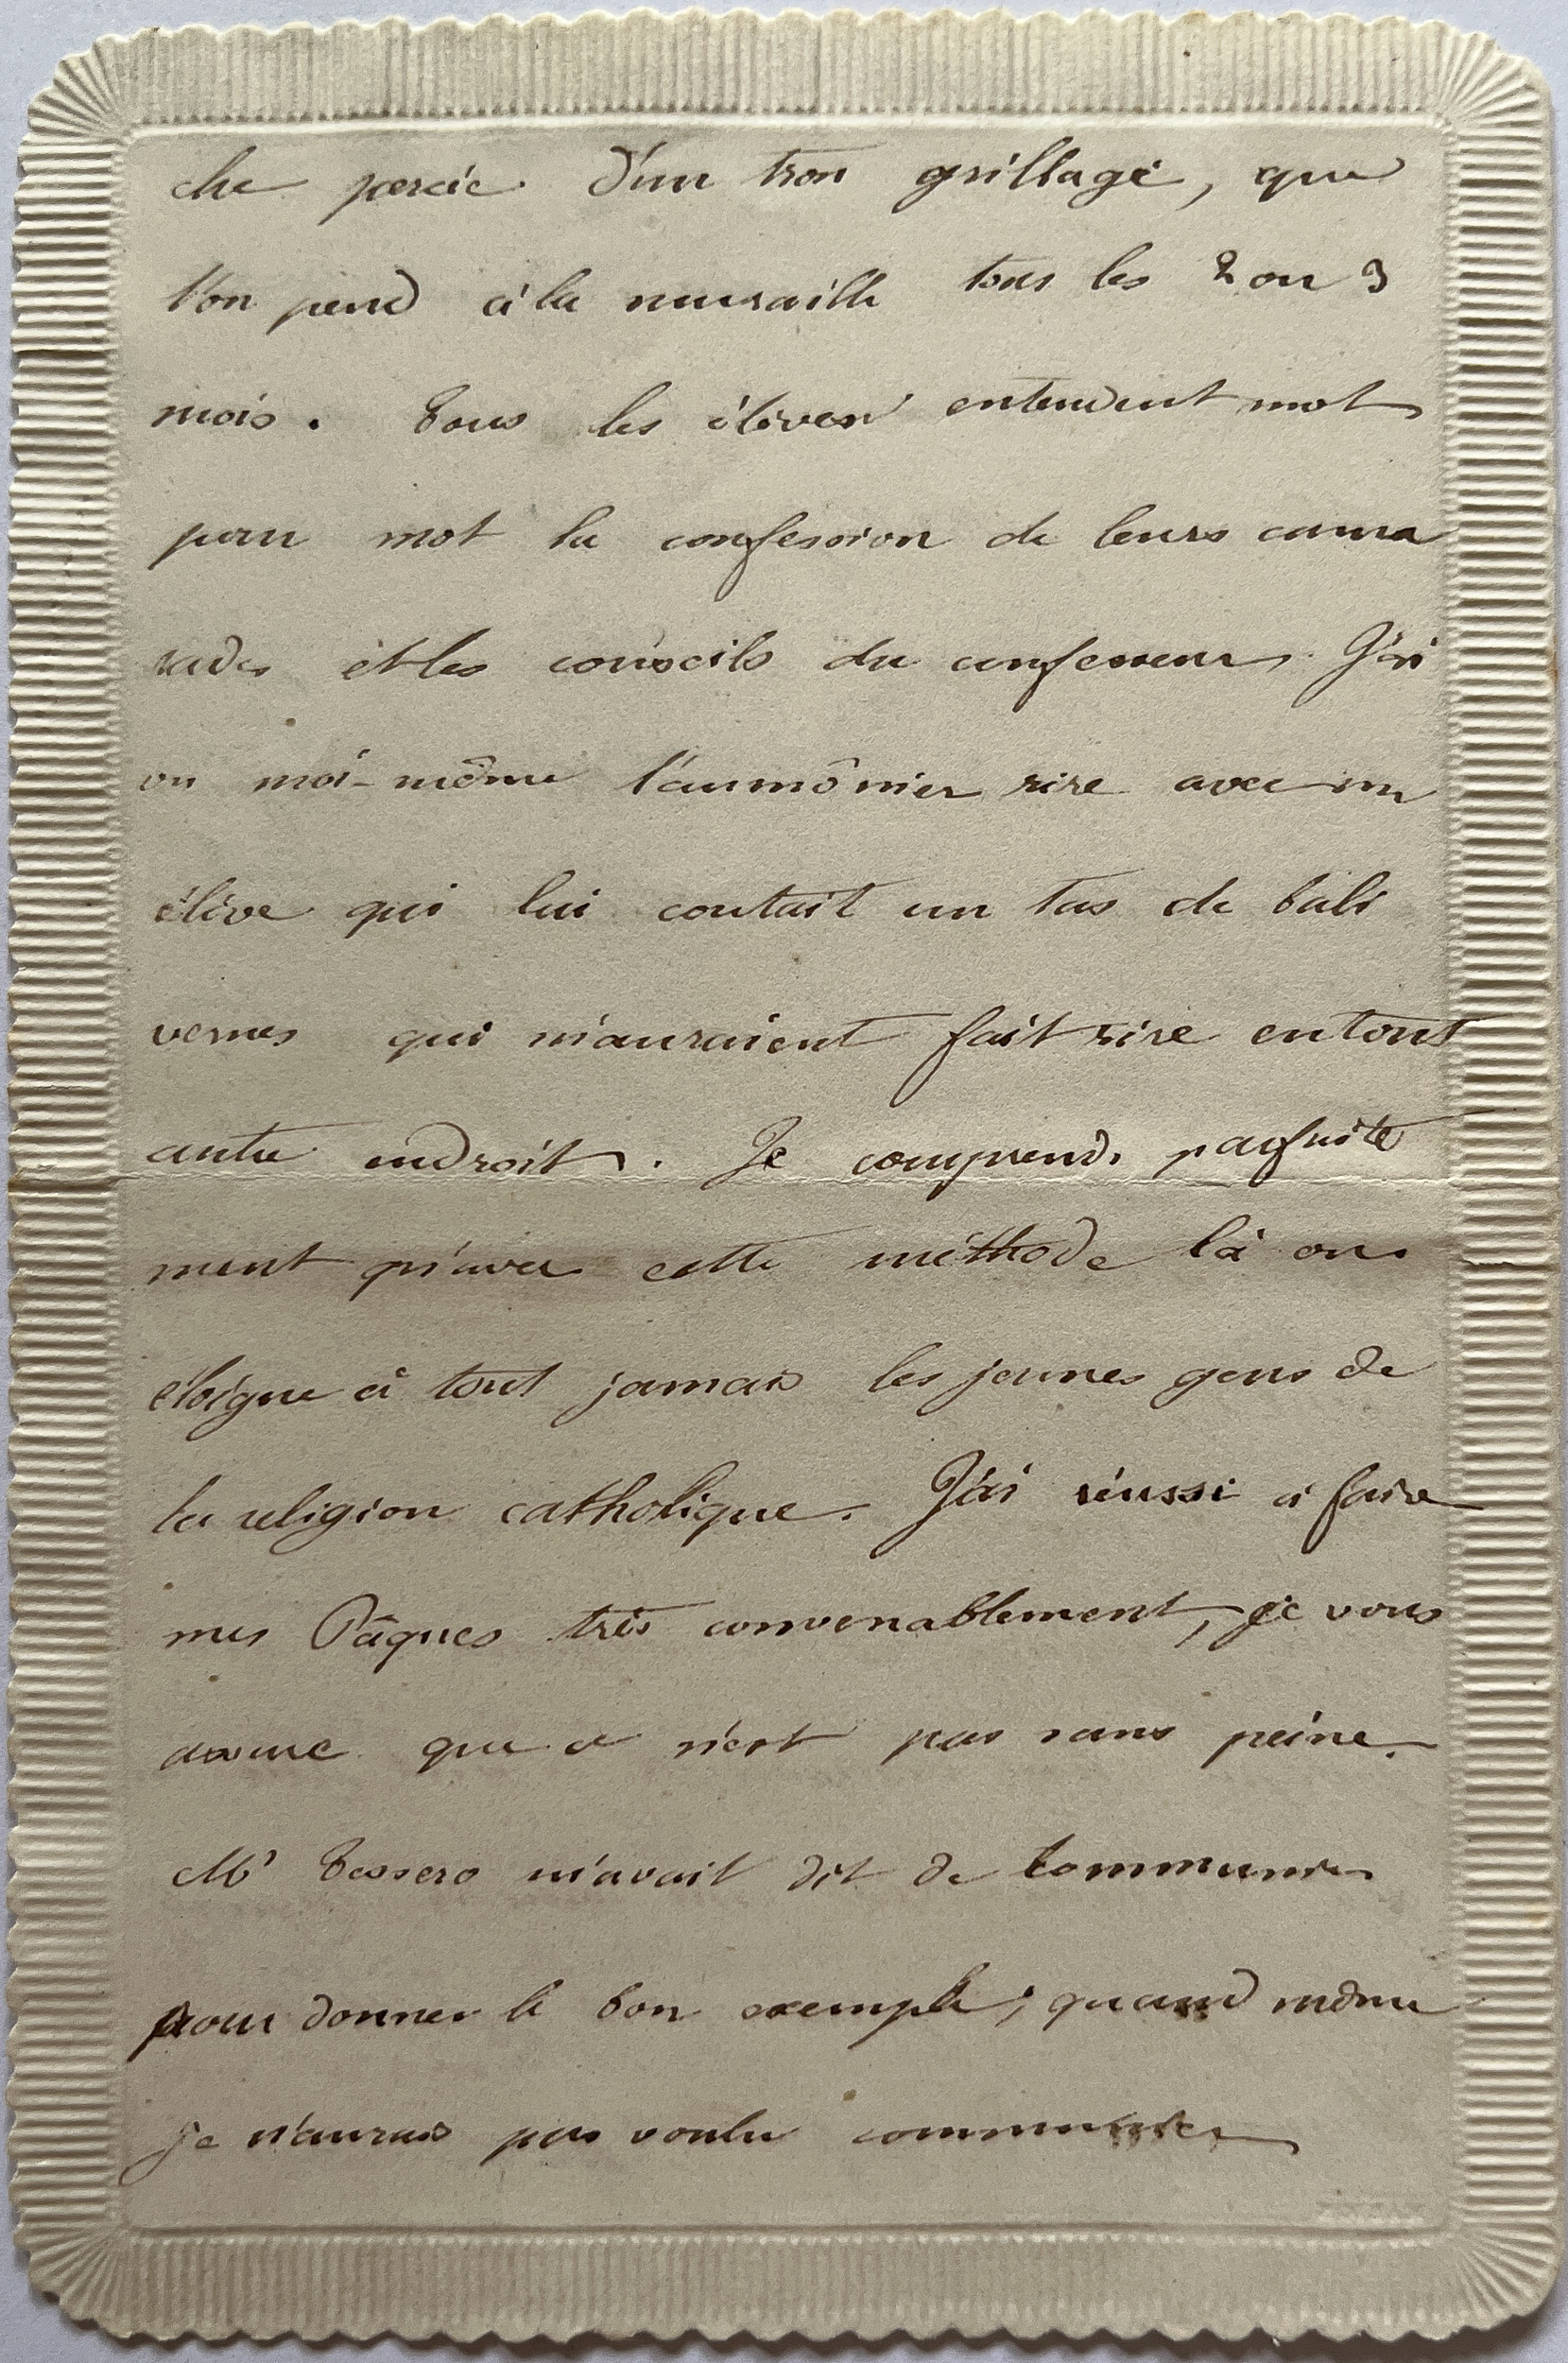 che percée d'un trou grillagé, que
l'on pend à la muraille tous les 2 ou 3
mois. Tous les élèves entendent mot
pour mot la confession de leurs cama
rades et les conseils du confesseur. J'ai
vu moi-même l'aumônier rire avec un
élève qui lui contait un tas de bali
vernes qui m'auraient fait rire en tout
autre endroit. Je comprends parfaite
ment qu'avec cette méthode là on
éloigne à tout jamais les jeunes gens de
la religion catholique. J'ai réussi à faire
mes Pâques très convenablement, je vous
assure que ce n'est pas sans peine.
Mr m'avait dit de communier
pour donner le bon exemple; quand même
je n'aurais pas voulu communier